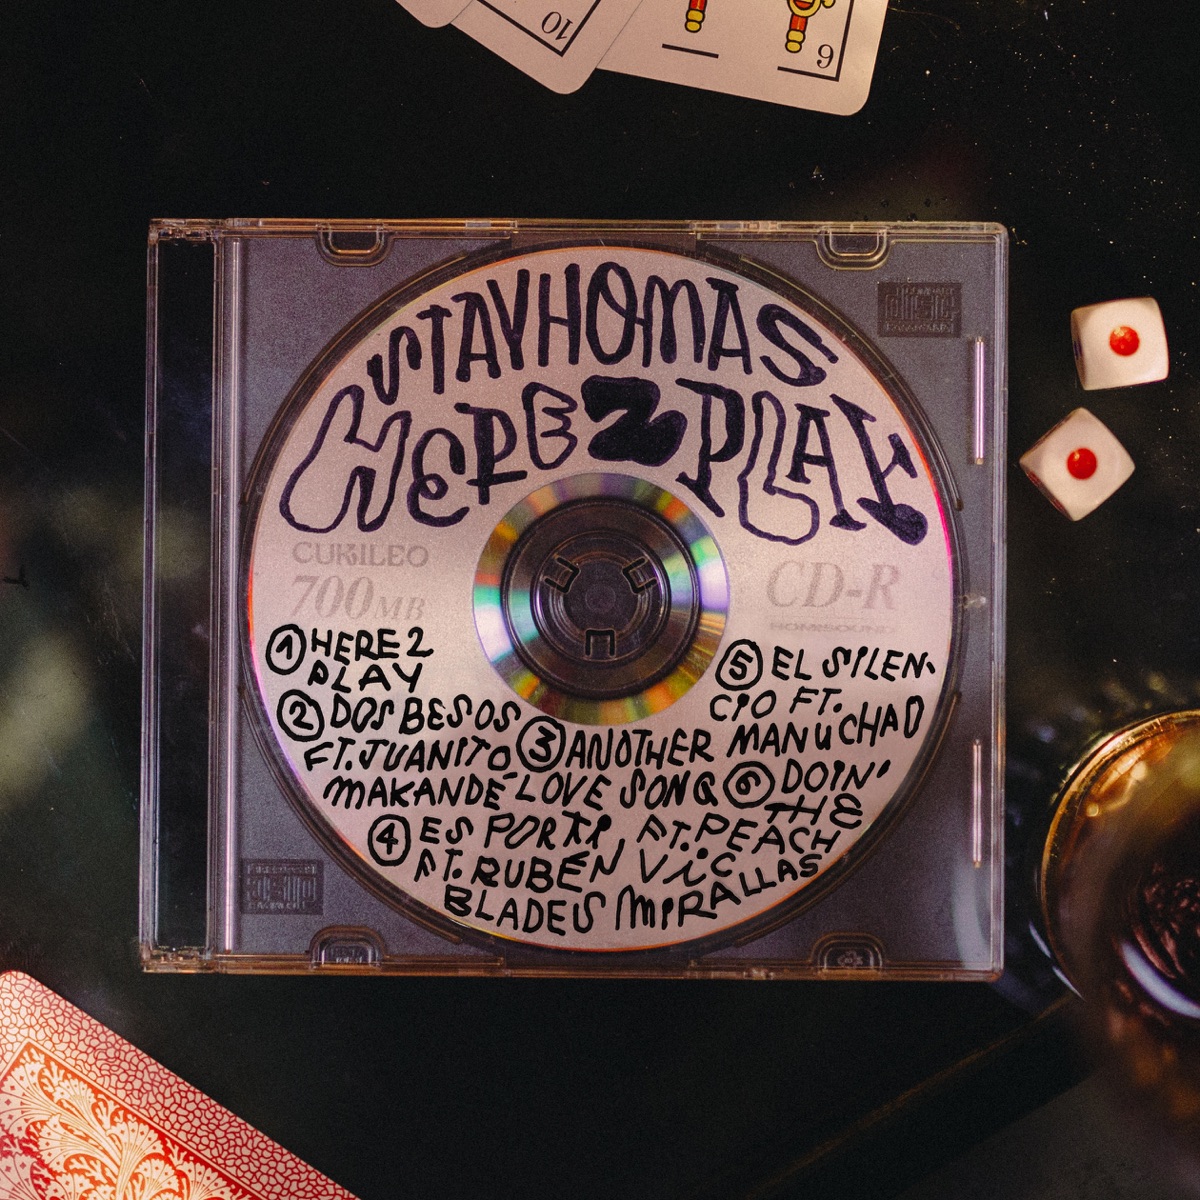 10
6
STAYHOMAS
HERE 2 PLAY
CUKILEO
700MB
CD-R
HOMISOUND
① HERE 2
PLAY
② DOS BESOS
FT. JUANITO
MAKANDÉ
③ ANOTHER
LOVE SONG
④ ES POR TI,
FT. RUBÉN
BLADES
⑤ EL SILEN-
CIO FT.
MANU CHAO
⑥ DOIN'
THE
FT. PEACH
VIC
MIRALLAS